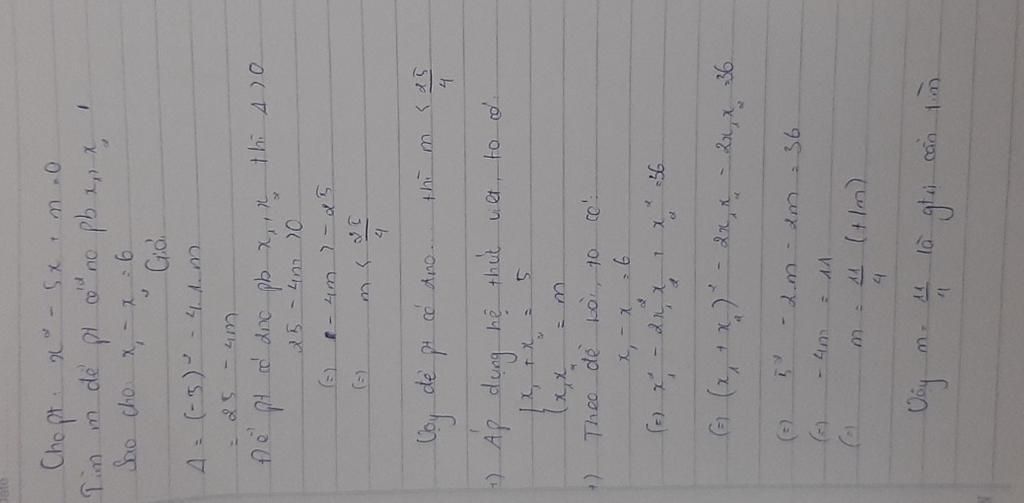 Cho pt: x² - 5x + m = 0
Tìm m để pt có 2 no pb x₁, x₂
sao cho x₁ - x₂ = 6
Giải
Δ = (-5)² - 4.1.m
= 25 - 4m
Để pt có 2no pb x₁, x₂ thì Δ > 0
25 - 4m > 0
(=) - 4m > -25
(=) m < 25/4
Vậy để pt có 2no... thì m < 25/4
+) Áp dụng hệ thức viet, ta có
{ x₁ + x₂ = 5
{ x₁x₂ = m
+) Theo đề bài, ta có:
x₁ - x₂ = 6
(=) x₁² - 2x₁x₂ + x₂² = 36
(=) (x₁ + x₂)² - 2x₁x₂ - 2x₁x₂ = 36
(=) 5² - 2m - 2m = 36
(=) - 4m = 11
(=) m = 11/4 (+lm)
Vậy m = 11/4 là gtrị cần tìm